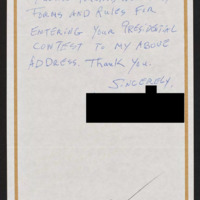 FORMS AND RULES FOR
ENTERING YOUR PRESIDENTIAL
CONTEST TO MY ABOVE
ADDRESS. THANK YOU.
SINCERELY,